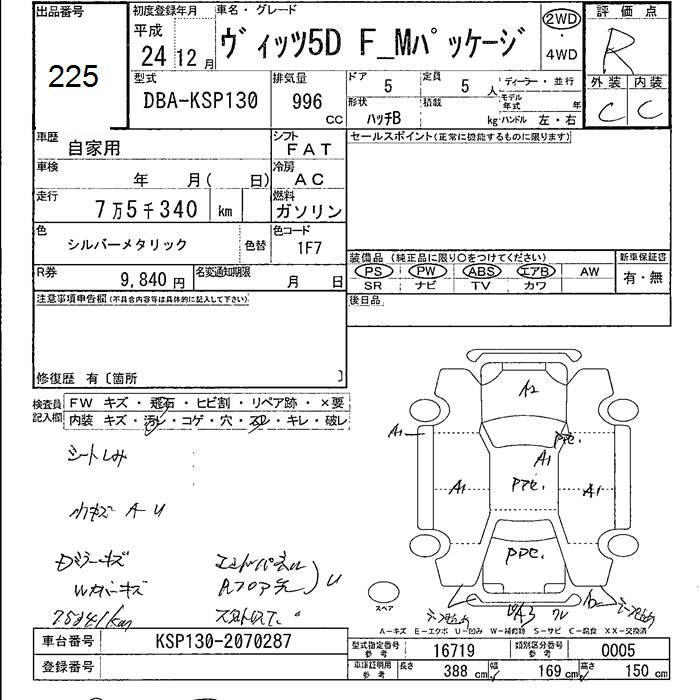 出品番号
225
初度登録年月
平成
24 12 月
車名・グレード
ヴィッツ5D F_Mパッケージ
2WD
・
4WD
評価点
R
外装 内装
C C
型式
DBA-KSP130
排気量
996
cc
ドア
5
定員
5 人
形状
ハッチB
積載
kg
ディーラー・並行
モデル年式 年
ハンドル 左・右
車歴
自家用
シフト
FAT
車検
年 月( 日)
冷房
AC
走行
7万5千340 km
燃料
ガソリン
色
シルバーメタリック
色替
色コード
1F7
R券
9,840 円
名変通知期限
月 日
セールスポイント(正常に機能するものに限ります)
装備品 (純正品に限り○をつけてください)
PS PW ABS エアB AW
SR ナビ TV カワ
新車保証書
有・無
後日品
注意事項申告欄(不具合内容等は具体的に記入して下さい)
修復歴 有〔箇所 〕
検査員記入欄
FW キズ・飛石・ヒビ割・リペア跡・×要
内装 キズ・汚レ・コゲ・穴・スレ・キレ・破レ
シートしみ
小キズ A-U
Wカバーキズ
U
A2
A1
A1
A1
A1
スペア
A-キズ E-エクボ U-凹み W-補修跡 S-サビ C-腐食 XX-交換済
車台番号
KSP130-2070287
登録番号
型式指定番号
参考
16719
類別区分番号
参考
0005
車庫証明用
参考
長さ
388 cm
幅
169 cm
高さ
150 cm